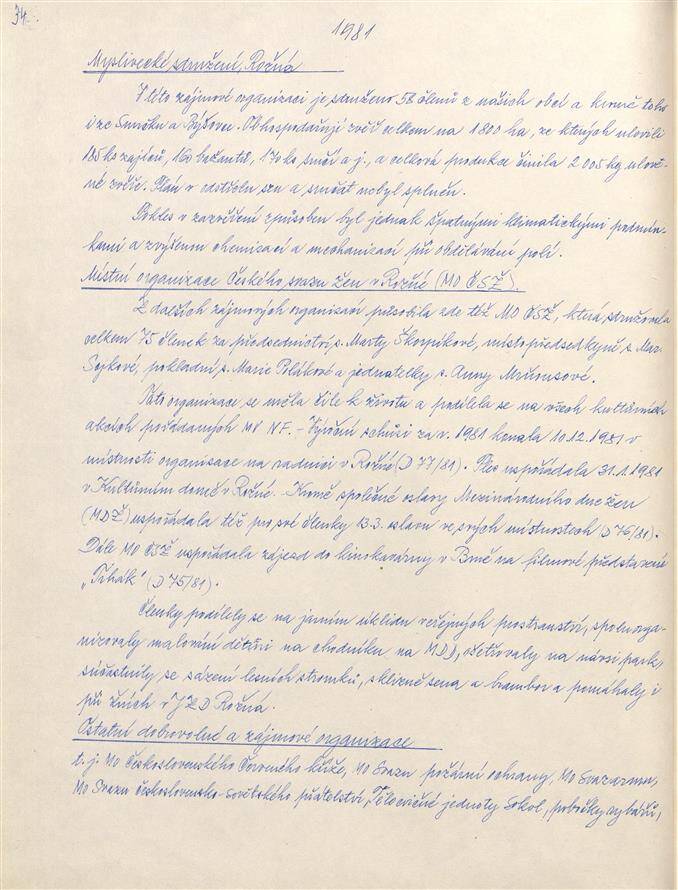 34.
1981
Myslivecké sdružení, Rožná
V této zájmové organizaci je sdruženo 58 členů z našich obcí a kromě toho
i ze Smrčku a Býšovec. Obhospodařují zvěř celkem na 1800 ha, ze kterých ulovili
185 ks zajíců, 160 bažantů, 170 ks srnčí a j., a celková produkce činila 2 005 kg ulove-
né zvěře. Plán v odstřelu srn a srnčat nebyl splněn.
Pokles v zazvěření způsoben byl jednak špatnými klimatickými podmín-
kami a zvýšenou chemisací a mechanisací při obdělávání polí.
Místní organizace Českého svazu žen v Rožné (MO ČSŽ).
Z dalších zájmových organisací působila zde též MO ČSŽ, která sdružovala
celkem 75 členek za předsednictví s. Marty Škorpíkové, místopředsedkyně s. Mar.
Sojkové, pokladní s. Marie Polákové a jednatelky s. Anny
Tato organizace se měla čile k životu a podílela se na všech kulturních
akcích pořádaných MV NF. - Výroční schůzi za r. 1981 konala 10.12.1981 v
místnosti organisace na radnici v Rožné (D 77/81). Ples uspořádala 31.1.1981
v Kulturním domě v Rožné. Kromě společné oslavy Mezinárodního dne žen
(MDŽ) uspořádala též pro své členky 13.3. oslavu ve svých místnostech (D 76/81).
Dále MO ČSŽ uspořádala zájezd do kinokavárny v Brně na filmové představení
„Trhák" (D 75/81).
Členky podílely se na jarním úklidu veřejných prostranství, spoluorga-
nizovaly malování dětmi na chodníku na MDD, ošetřovaly na návsi park,
súčastnily se sázení lesních stromků, sklizně sena a brambor a pomáhaly i
při žních v JZD Rožná.
Ostatní dobrovolné a zájmové organizace
t. j. MO Československého Červeného kříže, MO Svazu požární ochrany, MO Svazarmu,
MO Svazu československo-sovětského přátelství, Tělocvičné jednoty Sokol, pobočky rybářů,